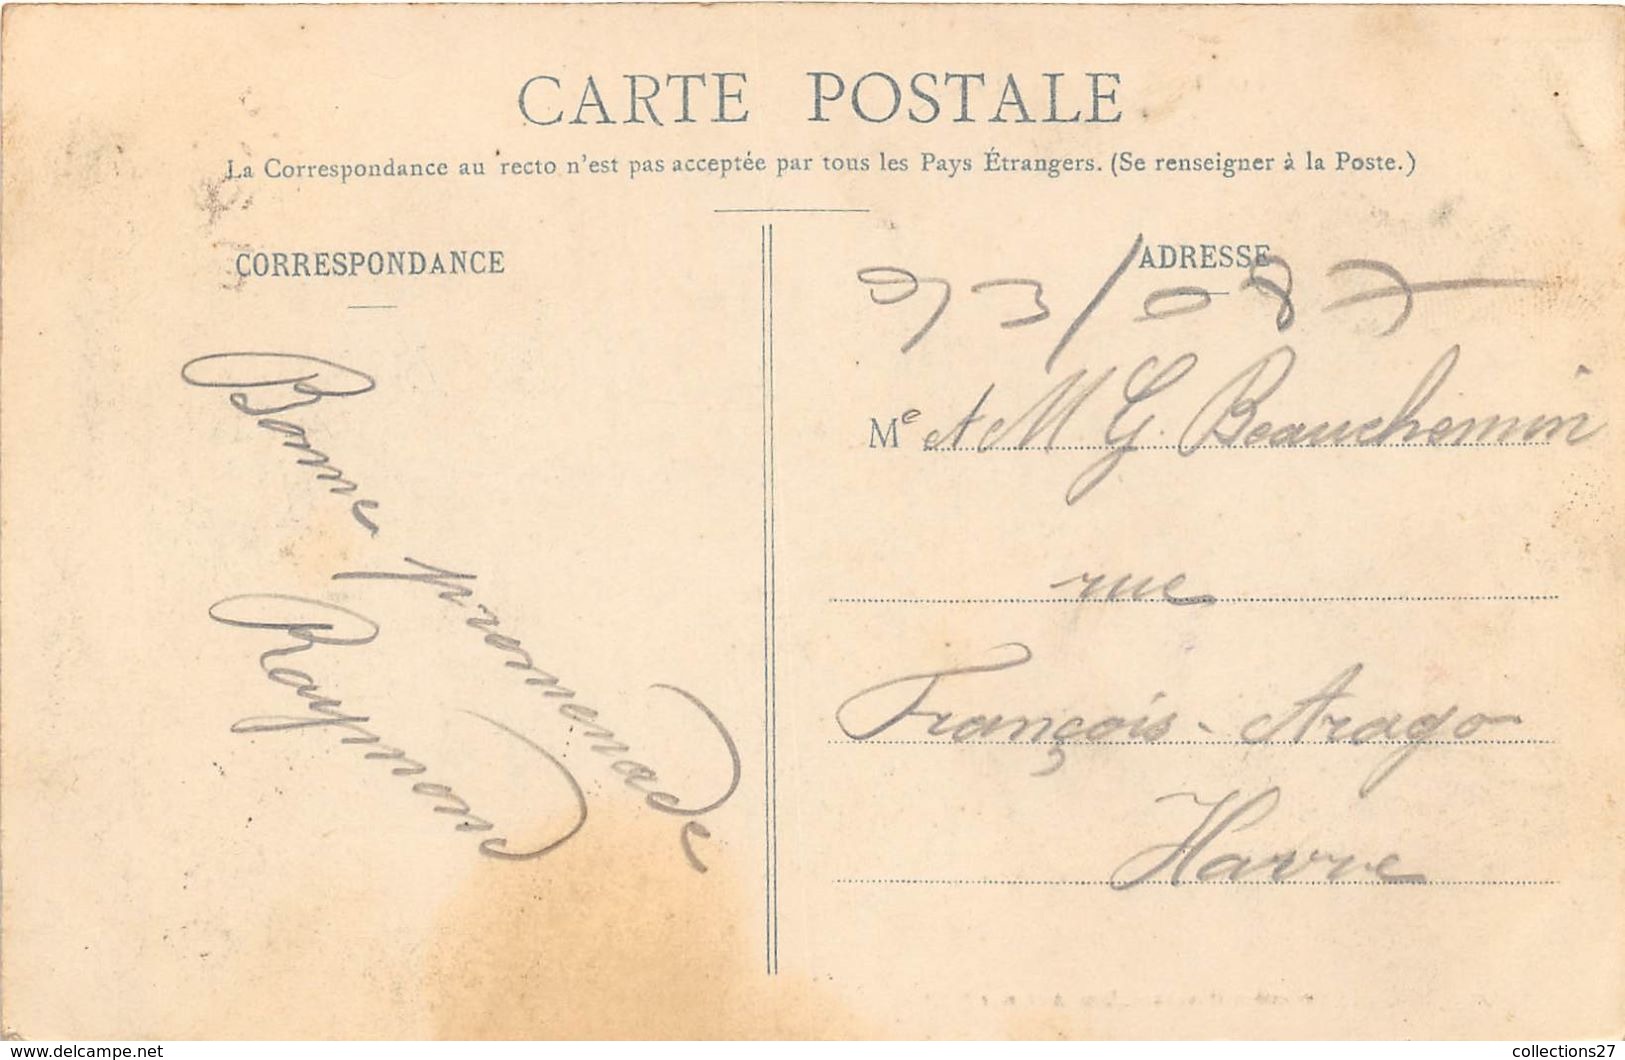 CARTE POSTALE
La Correspondance au recto n'est pas acceptée par tous les Pays Étrangers. (Se renseigner à la Poste.)
CORRESPONDANCE
Bonne promenade
Raymond
ADRESSE
Me et M G. Beauchemin
rue
François-Arago
Havre
www.delcampe.net
collections27